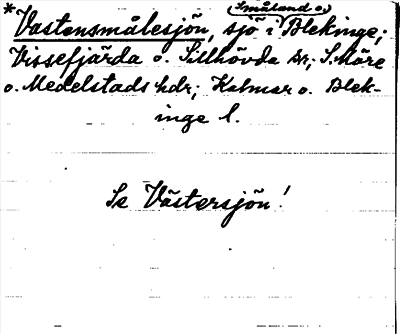 Småland o.
*Vastensmålesjön, sjö i Blekinge;
Vissefjärda o. Sillhövda snr; S. Möre
o. Medelstads hdr; Kalmar o. Blek-
inge l.
Se Västersjön!